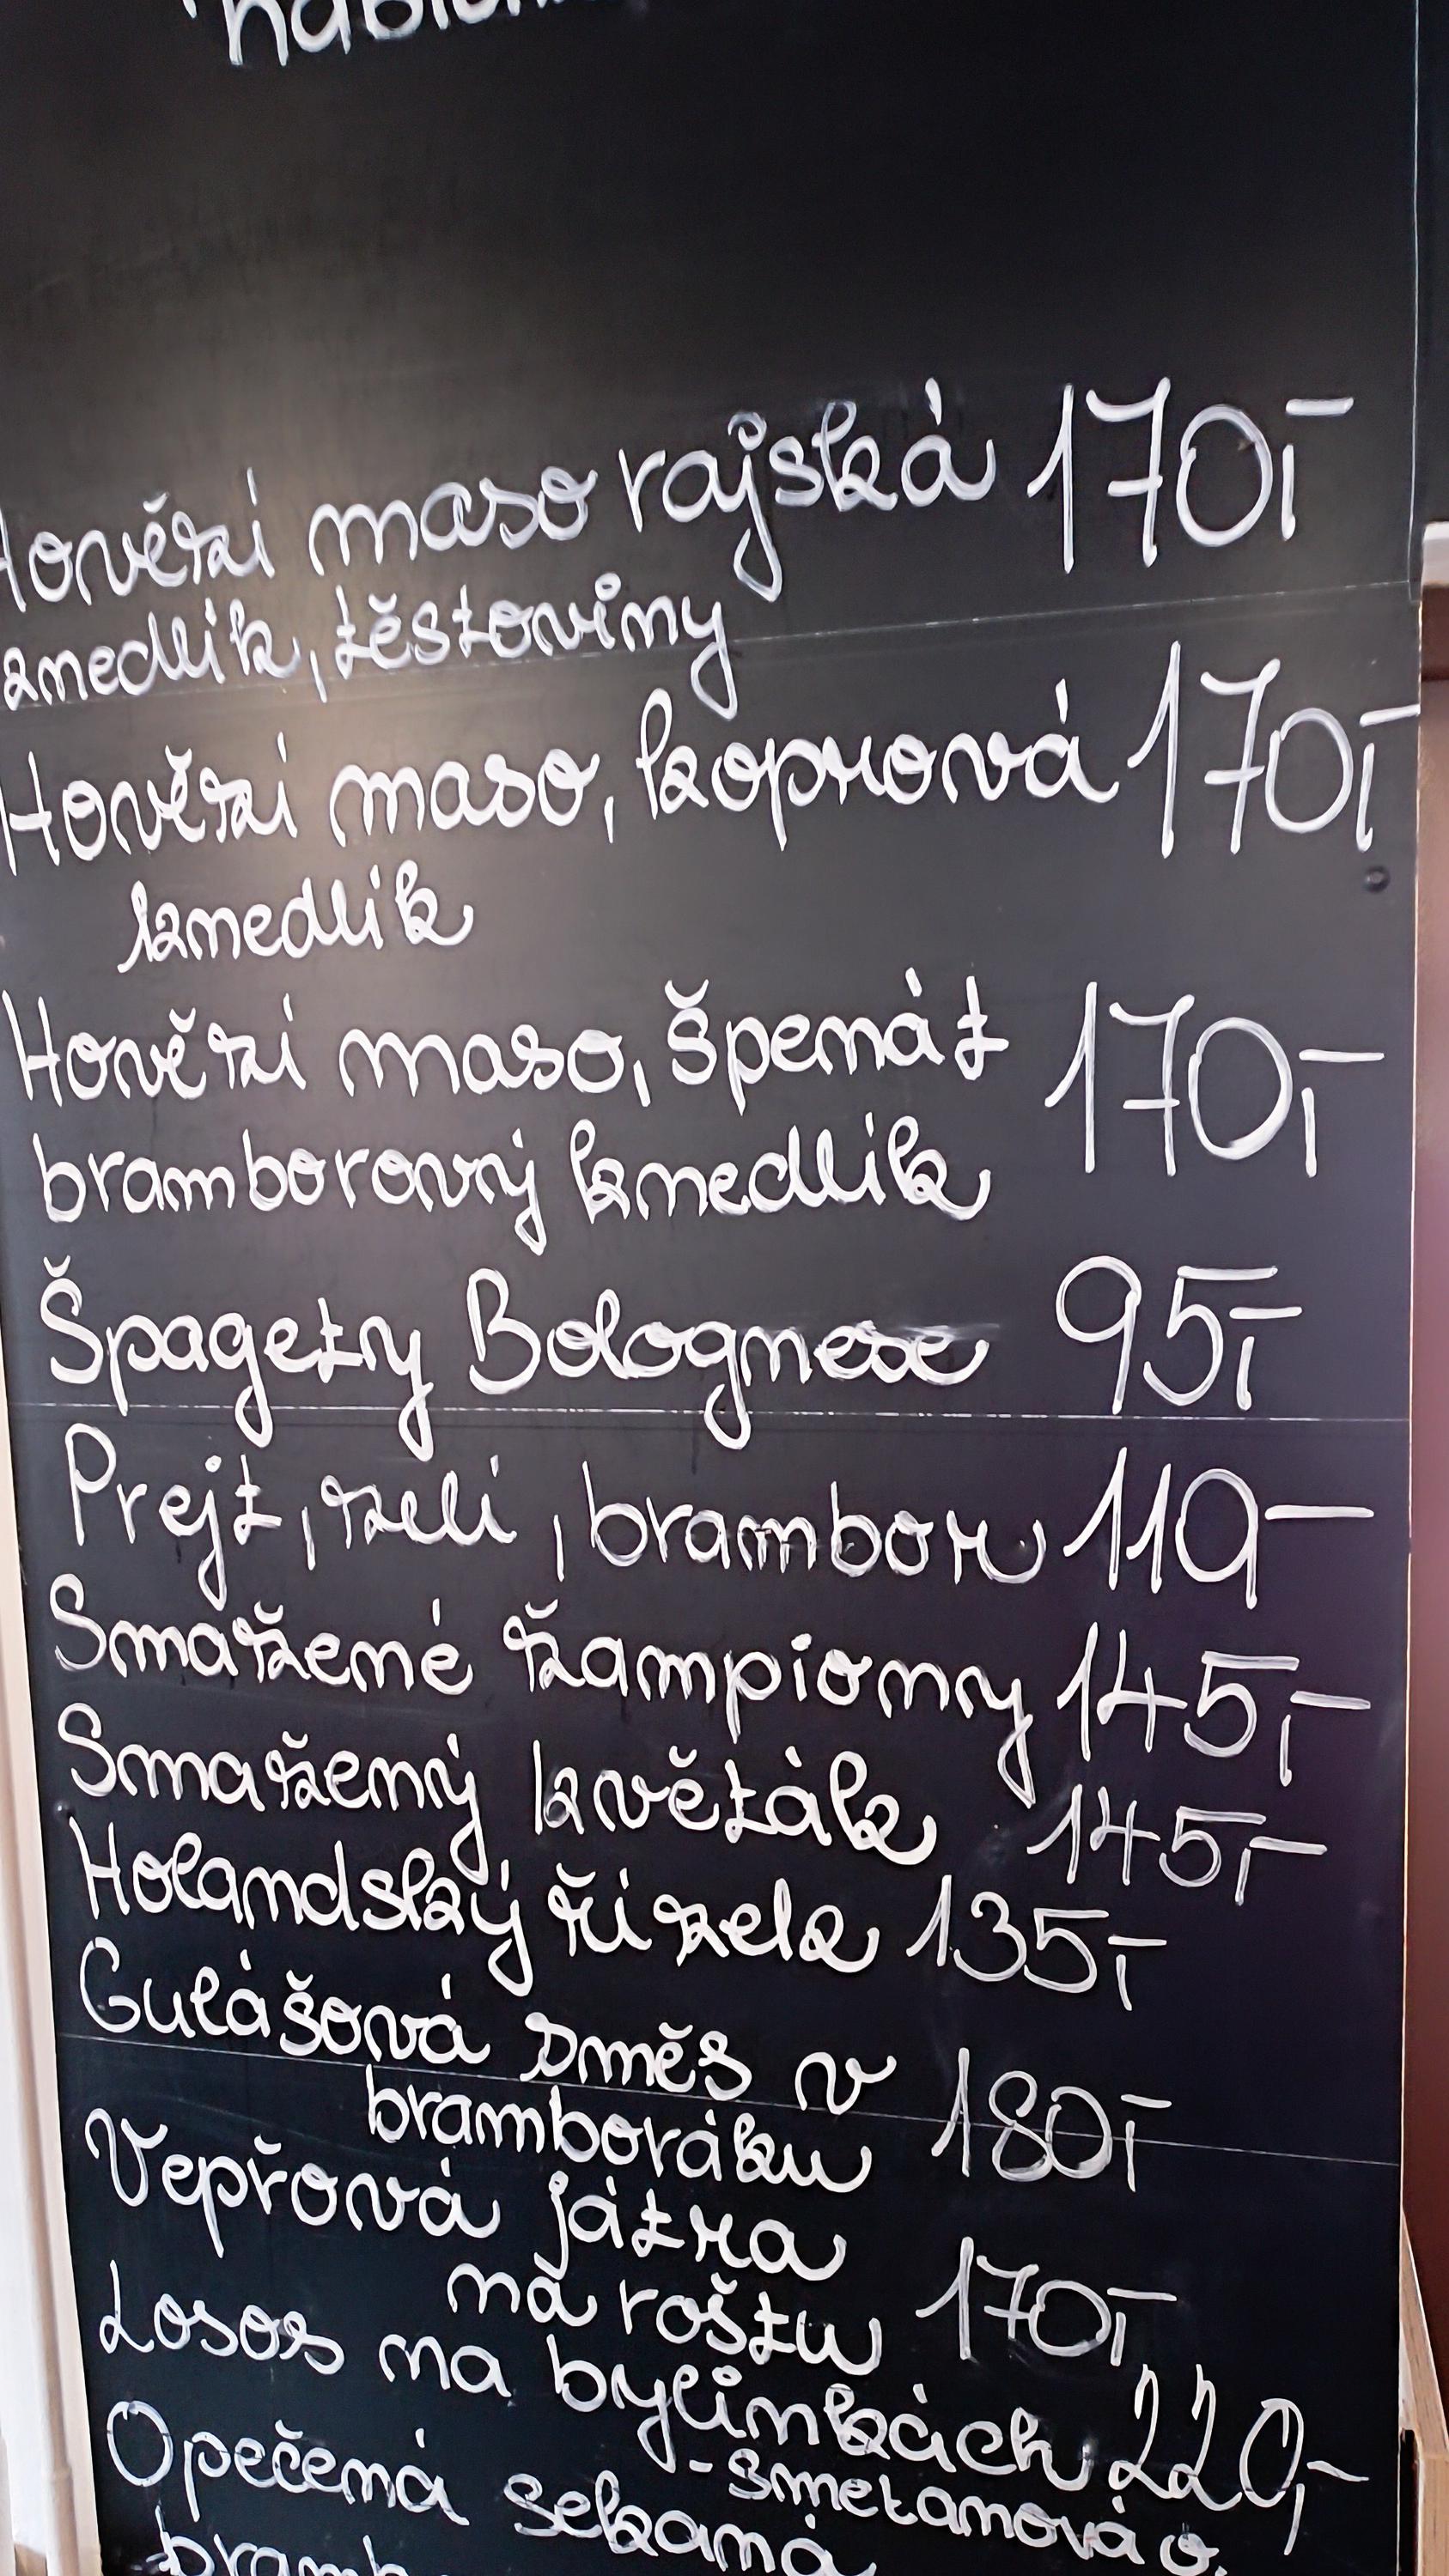 Hovězí maso rajská 170,-
knedlík, těstoviny
Hovězí maso, koprová 170,-
knedlík
Hovězí maso, špenát 170,-
bramborový knedlík
Špagety Bolognese 95,-
Prejt, zelí, brambor 119-
Smažené žampiony 145,-
Smažený květák 145,-
Holandský řízek 135,-
Gulášová směs v 180,-
bramboráku
Vepřová játra
na roštu 170,-
Losos na bylinkách 220,-
- smetanová o.
Opečená sekaná